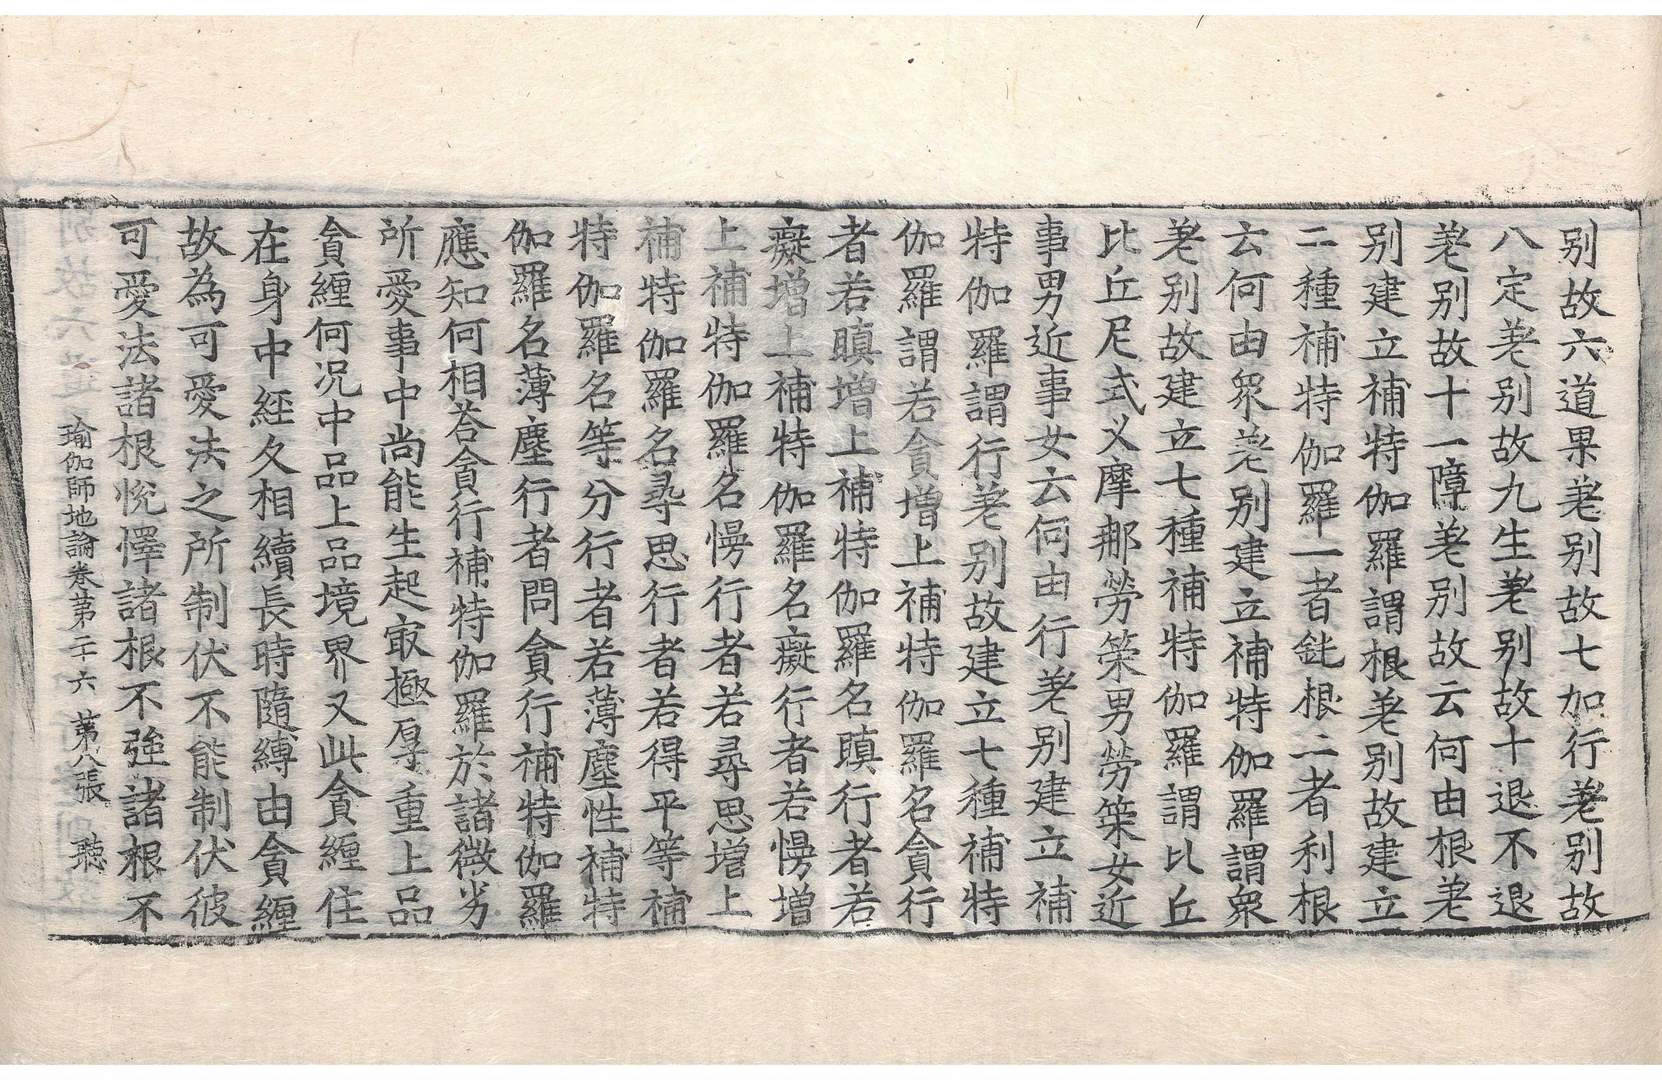 别故六道果差别故七加行差别故
八定差别故九生差别故十退不退
差别故十一障差别故云何由根差
别建立補特伽羅謂根差别故建立
二種補特伽羅一者鈍根二者利根
云何由衆差别建立補特伽羅謂衆
差别故建立七種補特伽羅謂比丘
比丘尼式叉摩那勞策男勞策女近
事男近事女云何由行差别建立補
特伽羅謂行差别故建立七種補特
伽羅謂若貪增上補特伽羅名貪行
者若瞋增上補特伽羅名瞋行者若
癡增上補特伽羅名癡行者若慢增
上補特伽羅名慢行者若尋思增上
補特伽羅名尋思行者若得平等補
特伽羅名等分行者若薄塵性補特
伽羅名薄塵行者問貪行補特伽羅
應知何相荅貪行補特伽羅於諸微劣
所愛事中尚能生起㝡極厚重上品
貪纏何况中品上品境界又此貪纏住
在身中經久相續長時隨縛由貪纏
故為可愛法之所制伏不能制伏彼
可愛法諸根恱懌諸根不強諸根不
瑜伽師地論卷第二十六 第八張 聴